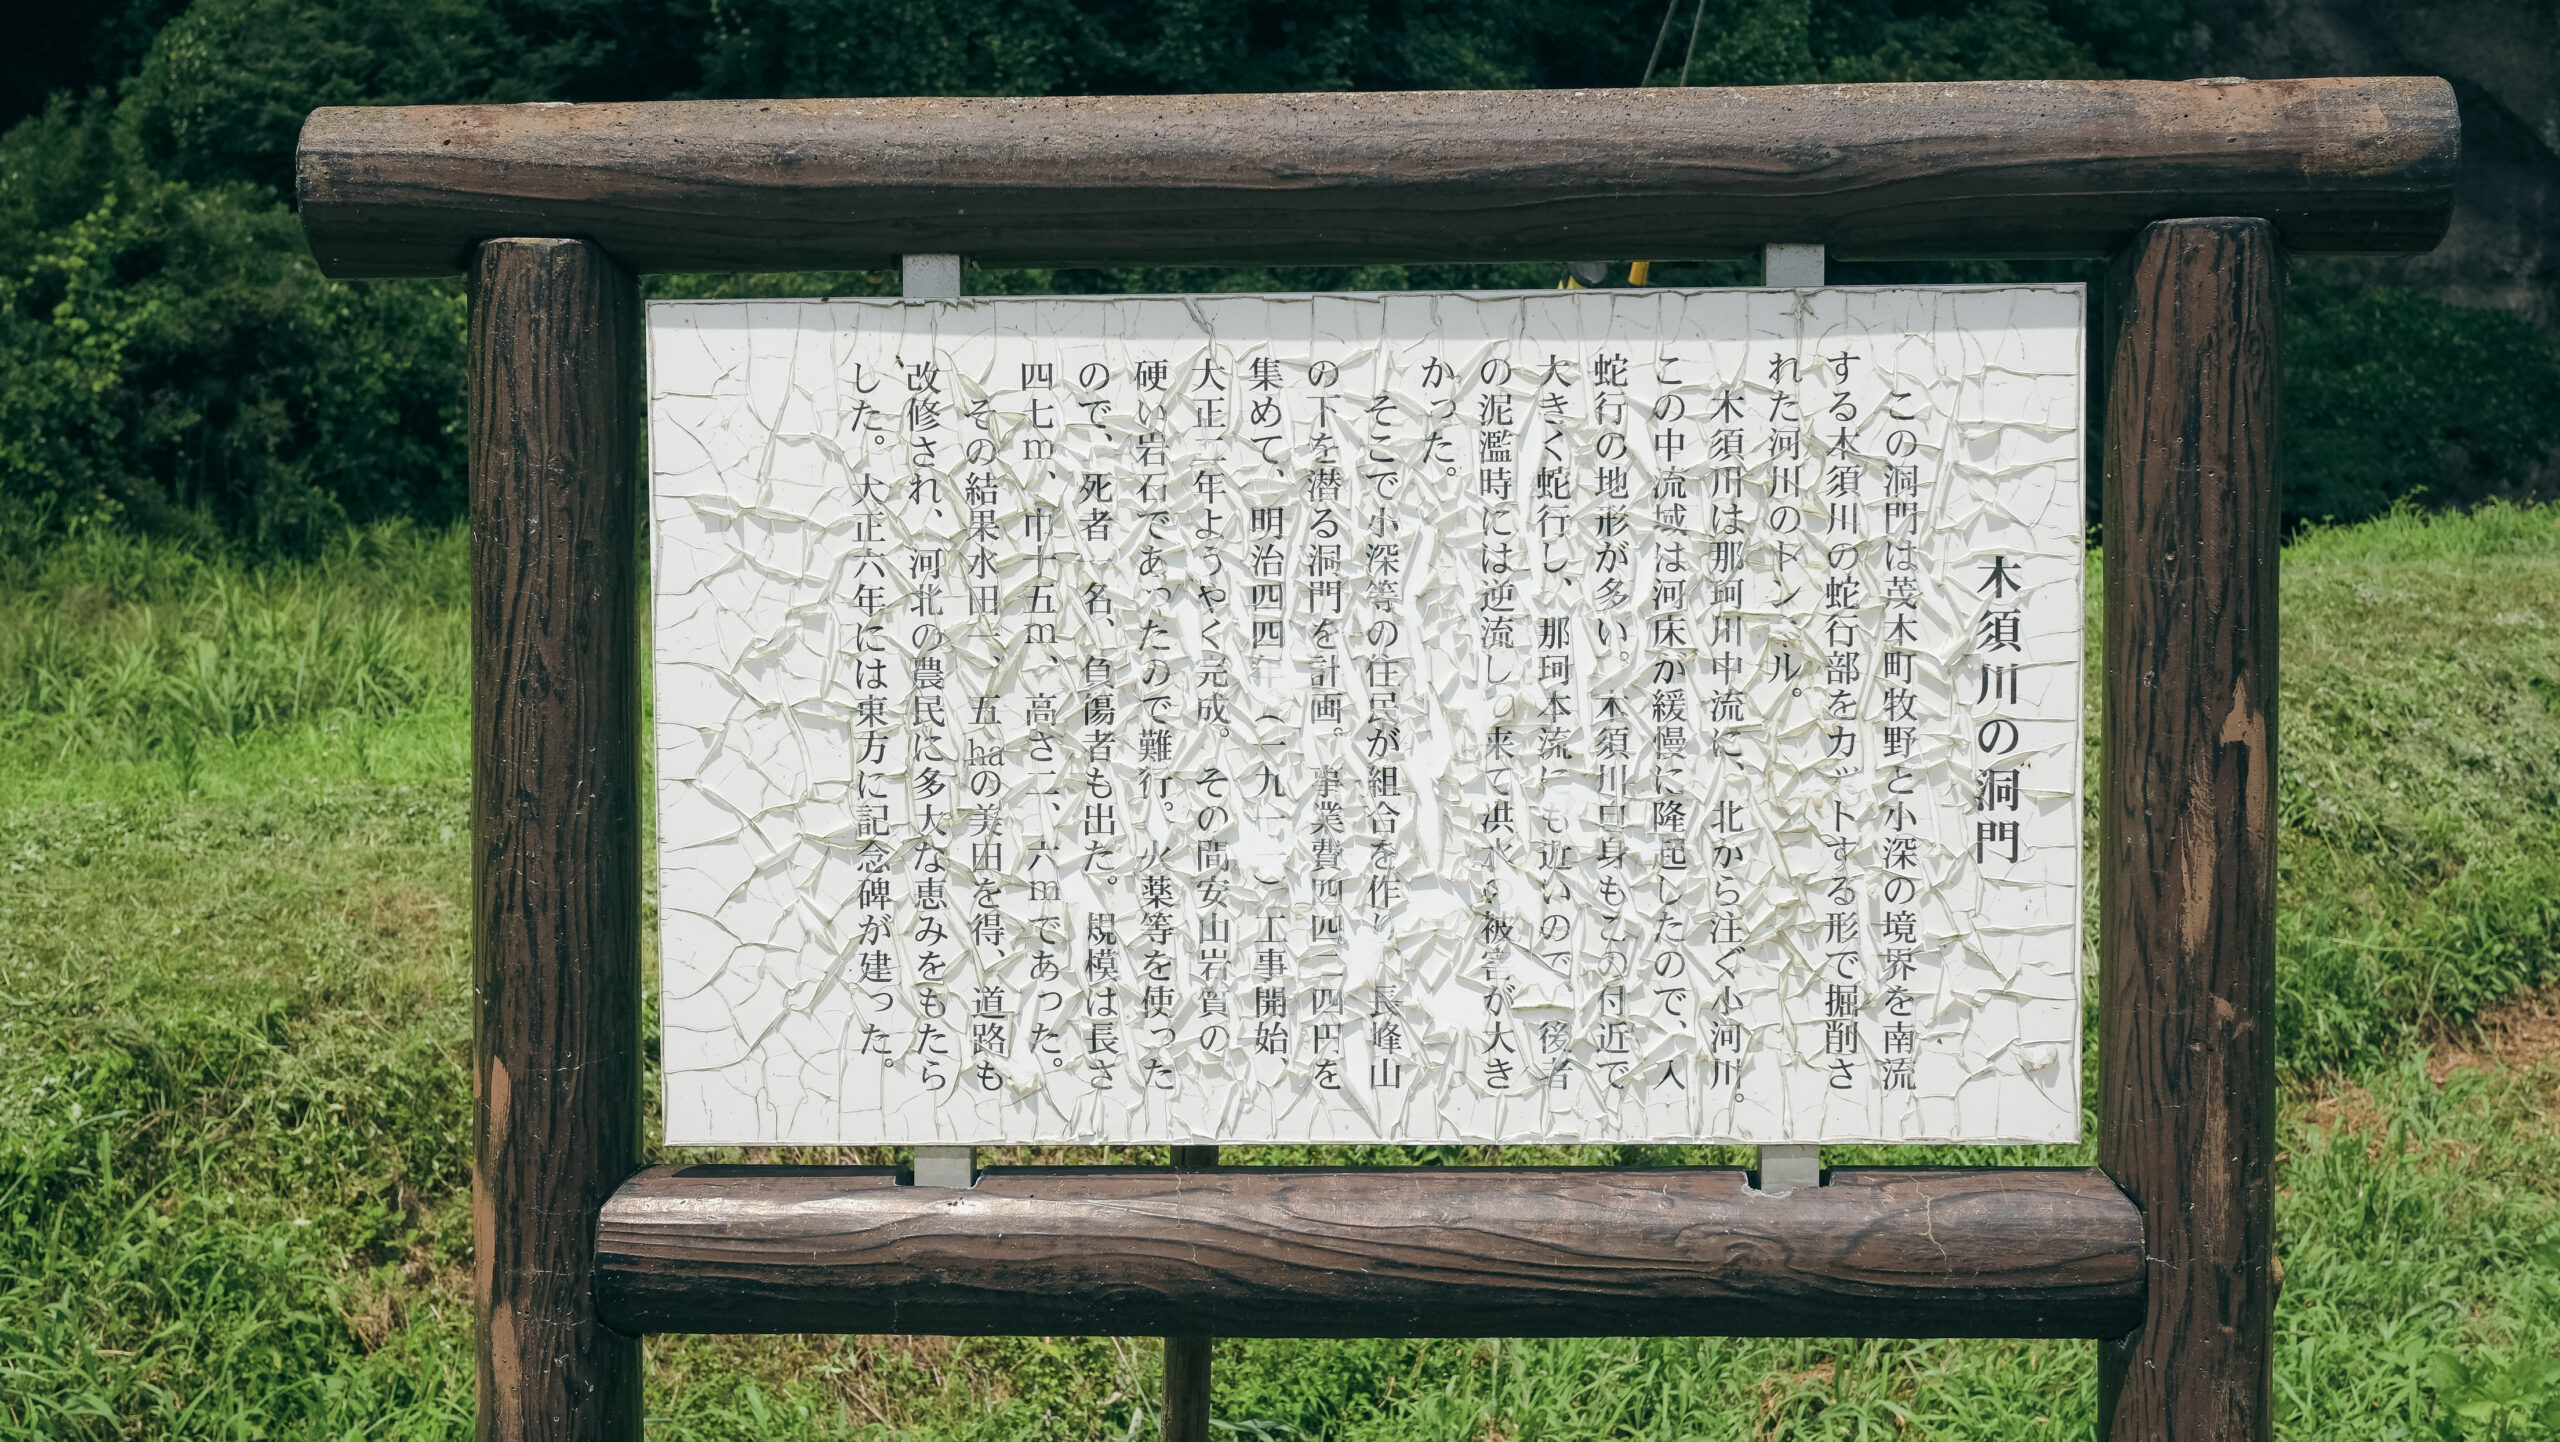 木須川の洞門
この洞門は茂木町牧野と小深の境界を南流
する木須川の蛇行部をカットする形で掘削さ
れた河川のトンネル。
木須川は那珂川中流に、北から注ぐ小河川。
この中流域は河床が緩慢に隆起したので、入
蛇行の地形が多い。木須川自身もこの付近で
大きく蛇行し、那珂本流にも近いので、後者
の泥濫時には逆流して来て洪水の被害が大き
かった。
そこで小深等の住民が組合を作り、長峰山
の下を潜る洞門を計画。事業費四四二四円を
集めて、明治四四年（一九一一）工事開始、
大正二年ようやく完成。その間安山岩質の
硬い岩石であったので難行。火薬等を使った
ので、死者一名、負傷者も出た。規模は長さ
四七ｍ、巾十五ｍ、高さ二、六ｍであった。
その結果水田一、五haの美田を得、道路も
改修され、河北の農民に多大な恵みをもたら
した。大正六年には東方に記念碑が建った。